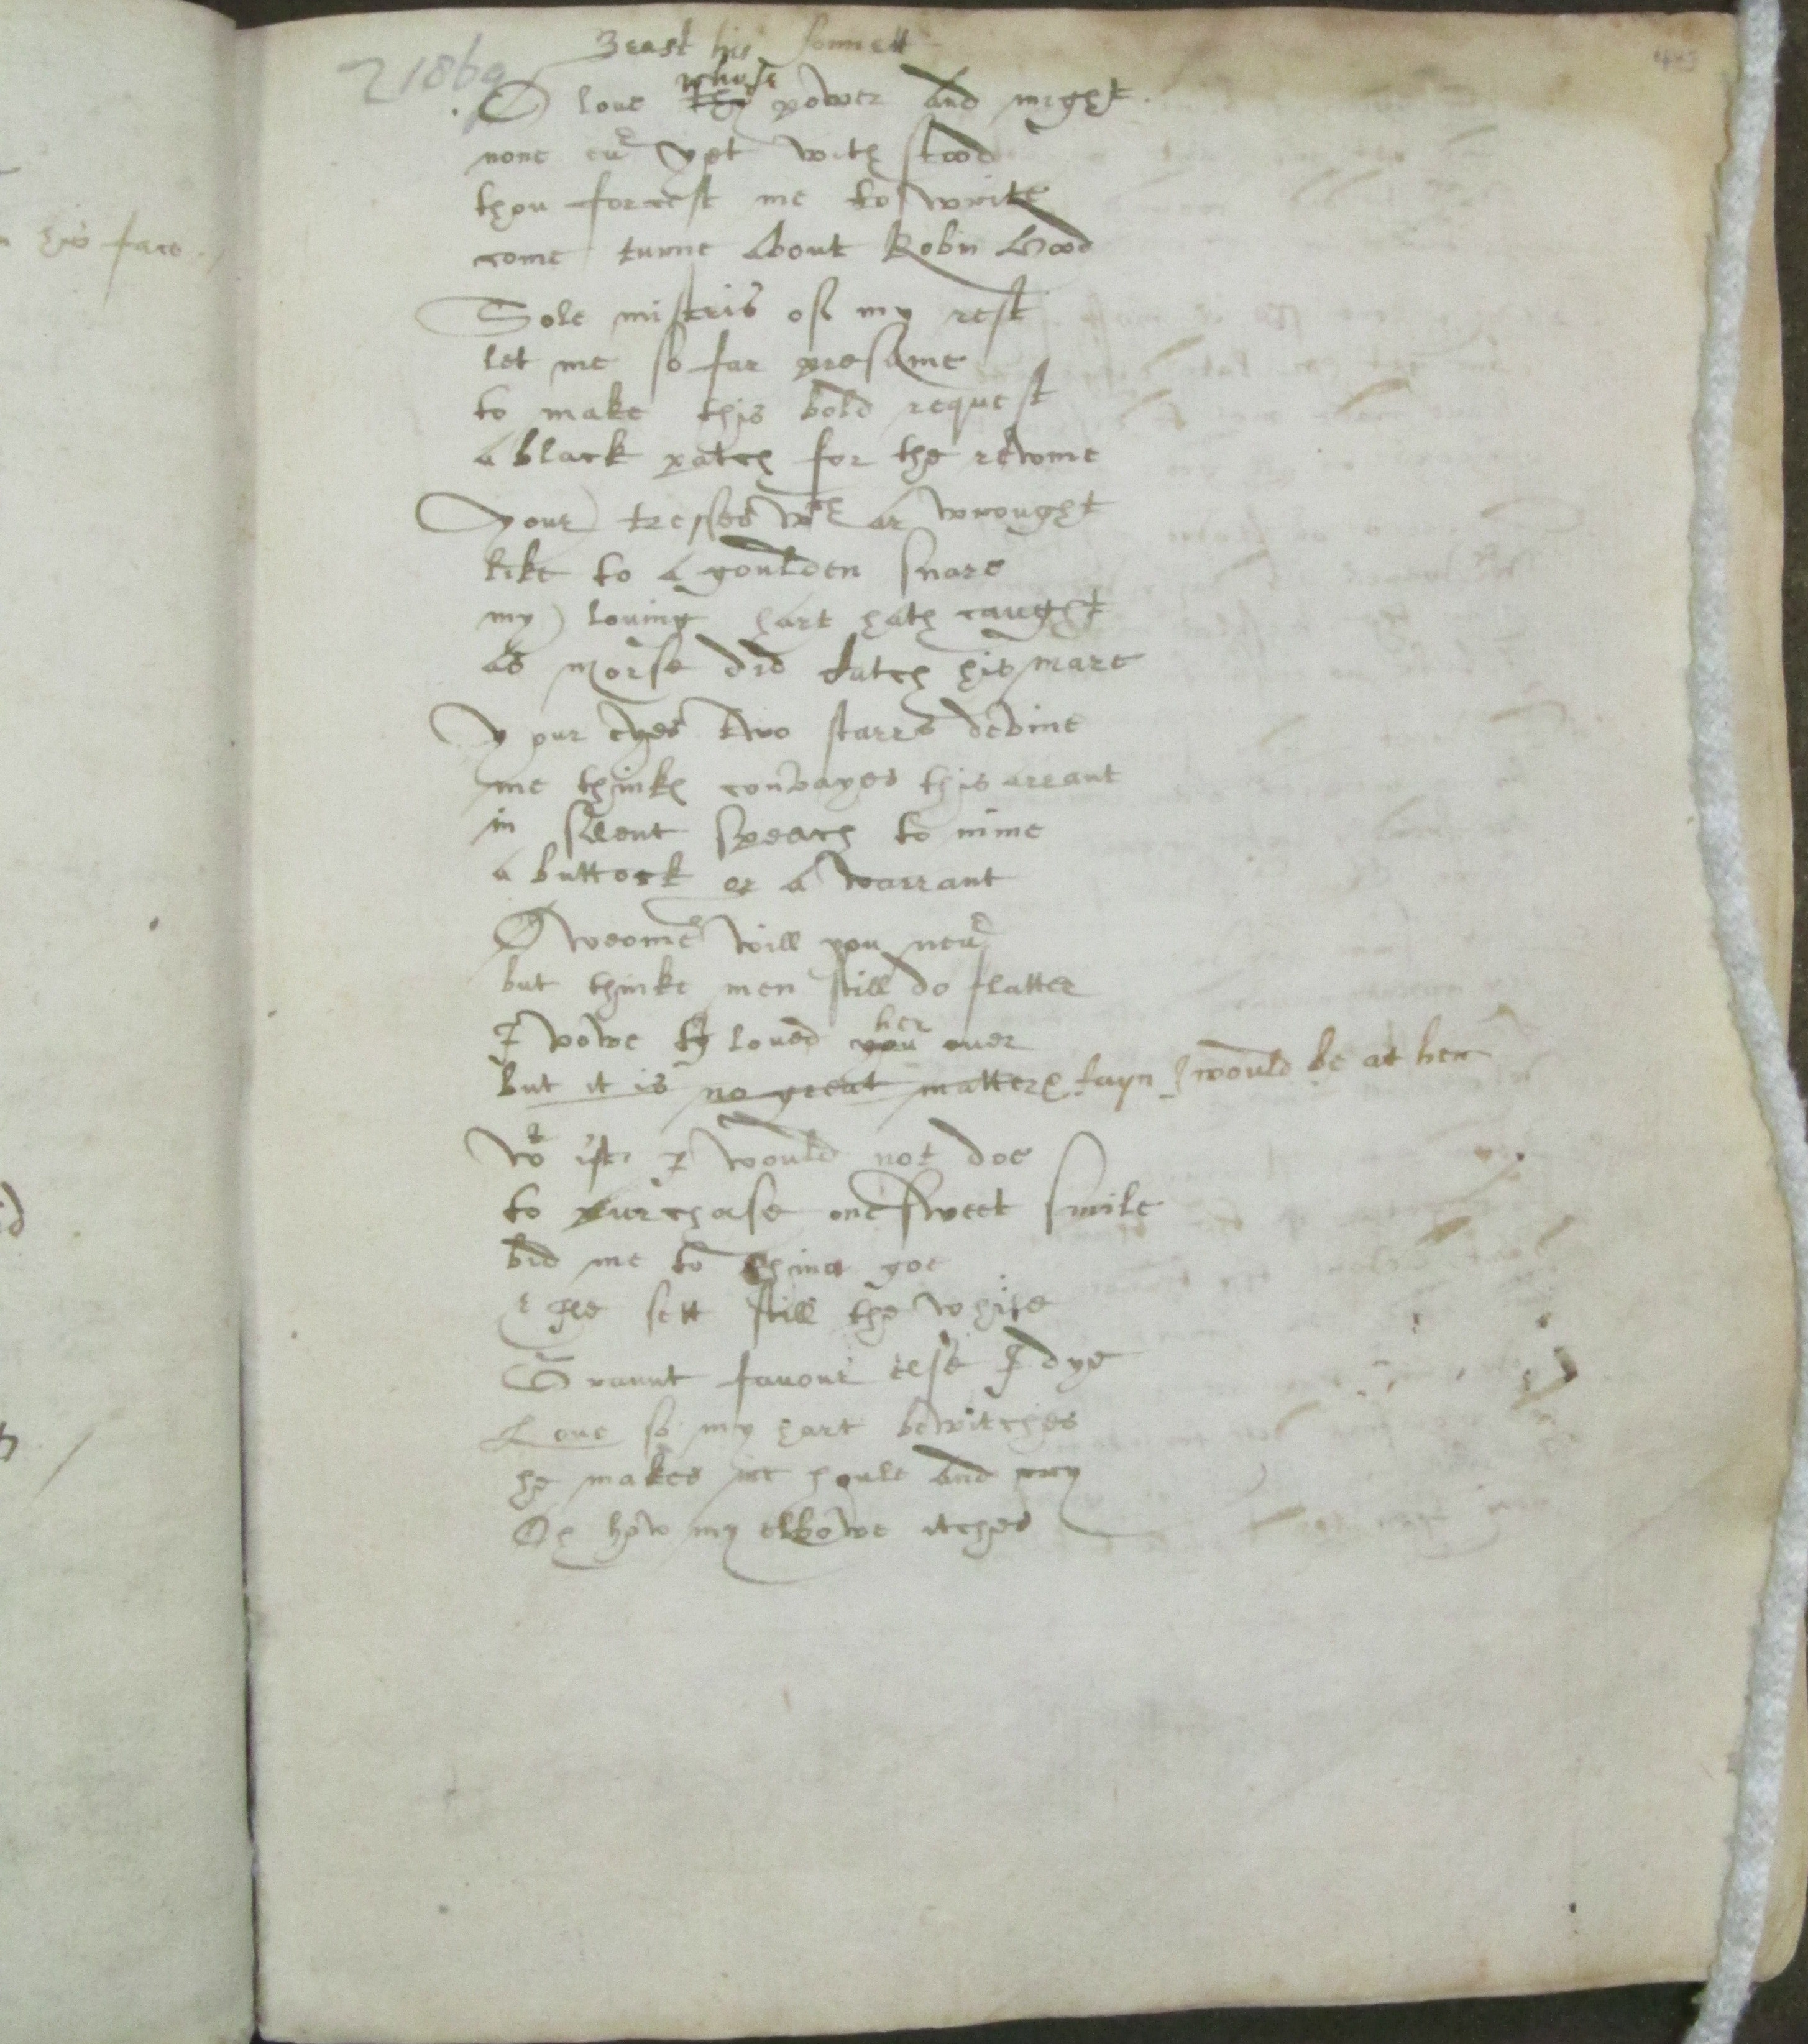 Zeast his sonnett
O loue thy whose power and might
none eur yet with stood
thou forcest me to write
come turne about Robin Hood
Sole mistris of my rest
let me so far presume
to make this bold request
a black patch for the rewme
your tresses wch ar wrought
like to a goulden snare
my louing hart hath caught
as morse did catch his mare
your eyes two starrs devine
me thinks convayes this arrant
in silent speach to mine
a buttock or a warrant
O weomen will you neur
but thinke men still do flatter
I vowe I loued you her euer
but it is no great matter fayn I would be at her
wt ist I would not doe
to purchase one sweet smile
bid me to China goe
& Ile sett still the while
Graunt fauour else I dye
Loue so my hart bewitches
he makes me houle and cry
Oh how my elbowe itches
his face